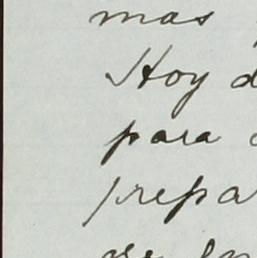 mas
Hoy d
para
prepa